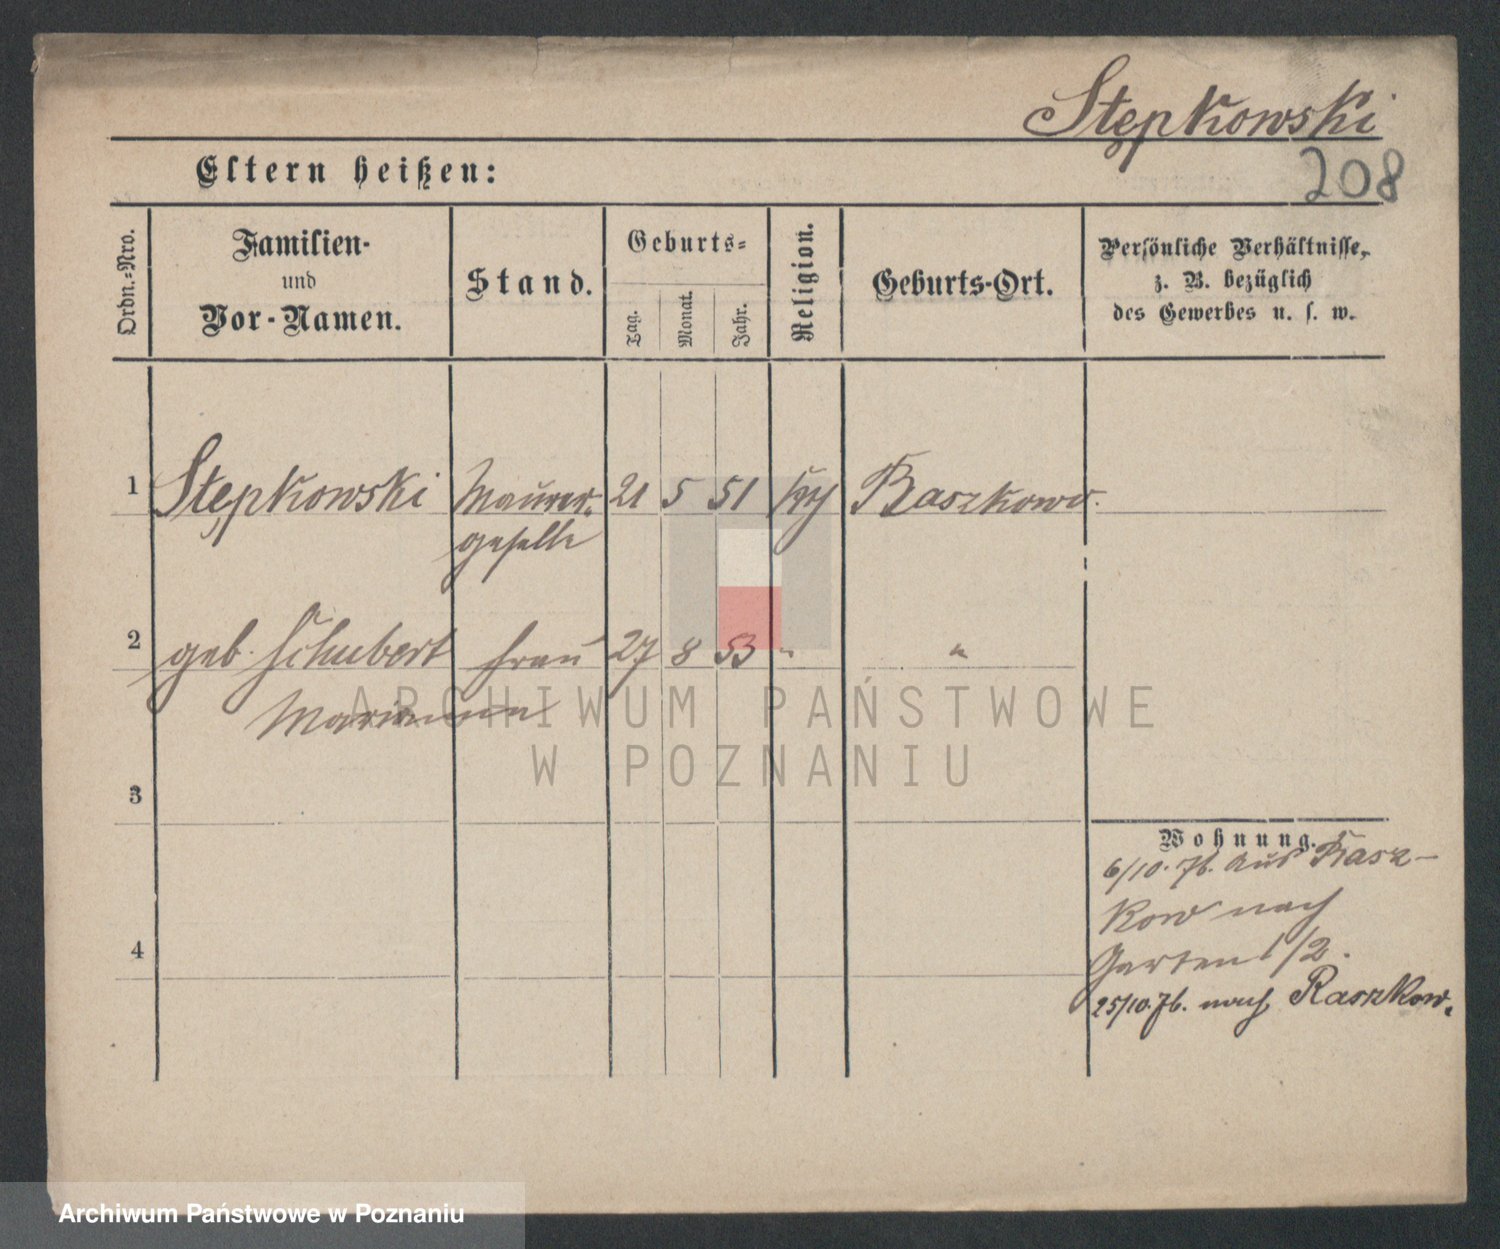 Stępkowski
208
Eltern heißen:
Ordn.-Nro.
Familien-
und
Vor-Namen.
Stand.
Geburts-
Tag.
Monat.
Jahr.
Religion.
Geburts-Ort.
Persönliche Verhältnisse,
z. B. bezüglich
des Gewerbes u. s. w.
1 Stępkowski Maurer- 21 5 51 Raszkow.
geselle
2 geb. Schubert Frau 27 8 53 " "
Marianna
3
4
Wohnung.
6/10. 76. aus Rasz-
kow nach
Garten 1/2.
25/10. 76. nach Raszkow.
ARCHIWUM PAŃSTWOWE
W POZNANIU
Archiwum Państwowe w Poznaniu